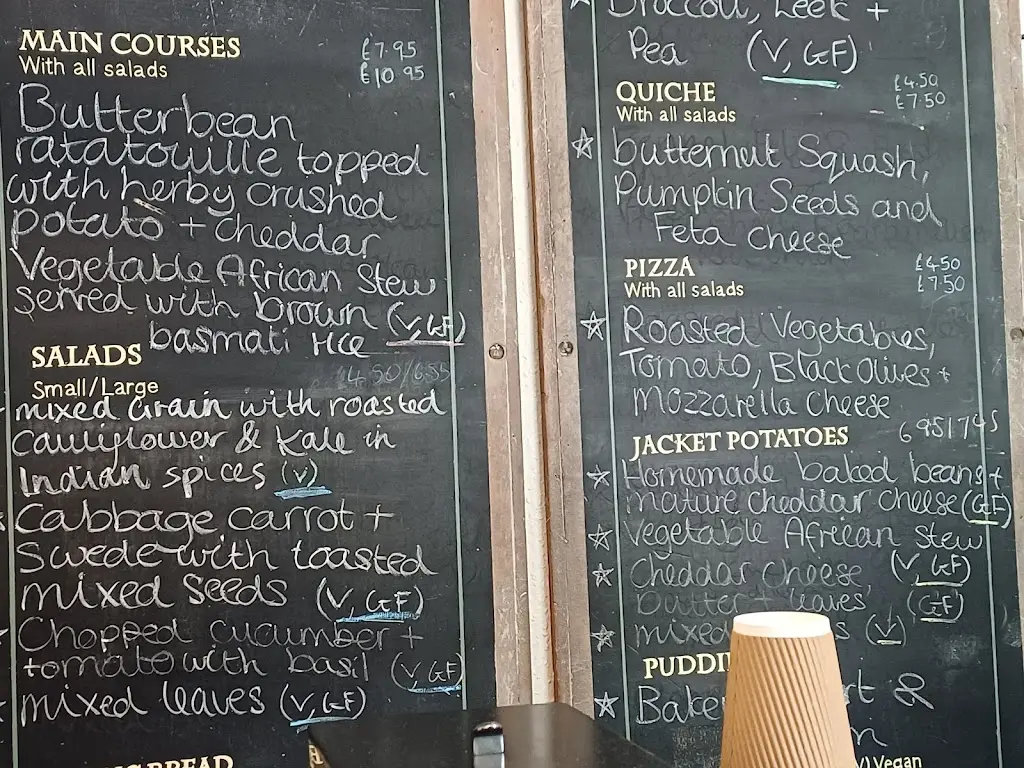 MAIN COURSES
With all salads
£7.95
£10.95
Butterbean
ratatouille topped
with herby crushed
potato + cheddar
Vegetable African Stew
served with brown (V, GF)
basmati rice
SALADS
Small/Large
4.50/6.55
mixed Grain with roasted
Cauliflower & Kale in
Indian spices (V)
Cabbage carrot +
Swede with toasted
mixed Seeds (V, GF)
Chopped cucumber +
tomato with basil (V, GF)
mixed leaves (V, GF)
BREAD
Broccoli, Leek +
Pea (V, GF)
QUICHE
With all salads
£4.50
£7.50
butternut Squash,
Pumpkin Seeds and
Feta Cheese
PIZZA
With all salads
£4.50
£7.50
Roasted Vegetables,
Tomato, Black olives +
Mozzarella Cheese
JACKET POTATOES
6.95/7.95
Homemade baked beans +
mature cheddar cheese (GF)
Vegetable African Stew
Cheddar cheese (V, GF)
Butter + leaves (GF)
mixed (V)
PUDDI
Bake rt &
Vegan